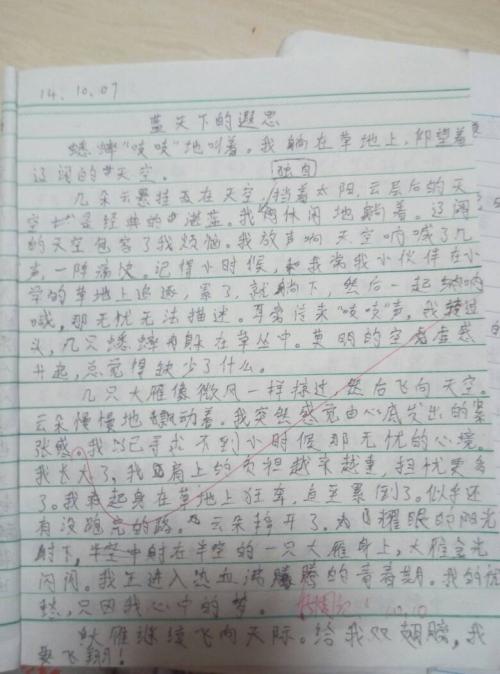 14.10.07
蓝天下的遐思
蟋蟀“吱吱”地叫着。我躺在草地上，仰望着
辽阔的天空。
独自
几朵云悬挂在天空，挡着太阳，云层后的天
空是经典的湛蓝。我休闲地躺着。辽阔
的天空包容了我烦恼。我放声向天空呐喊了几
声，一阵痛快。记得小时候，和我常我小伙伴在小
学的草地上追逐，累了，就躺下，然后一起呐
喊，那无忧无法描述。耳旁传来“吱吱”声，我转过
头，几只蟋蟀躲在草丛中。莫明的空虚感
升起，总觉得缺少了什么。
几只大雁像微风一样掠过，然后飞向天空。
云朵慢慢地飘动着。我突然感觉由心底发出的紧
张感。我以已寻求不到小时候那无忧的心境。
我长大了，我肩上的负担越来越重，担忧更多
了。我起身在草地上狂奔，直至累倒了。似乎还
有没跑完的路。云朵挣开了，耀眼的阳光
射下，射在半空的一只大雁身上，大雁金光
闪闪。我正进入热血满腾的青春期。我的忧
愁，只因我心中的梦。
10.10
大雁继续飞向天际。给我双翅膀，我
要飞翔！